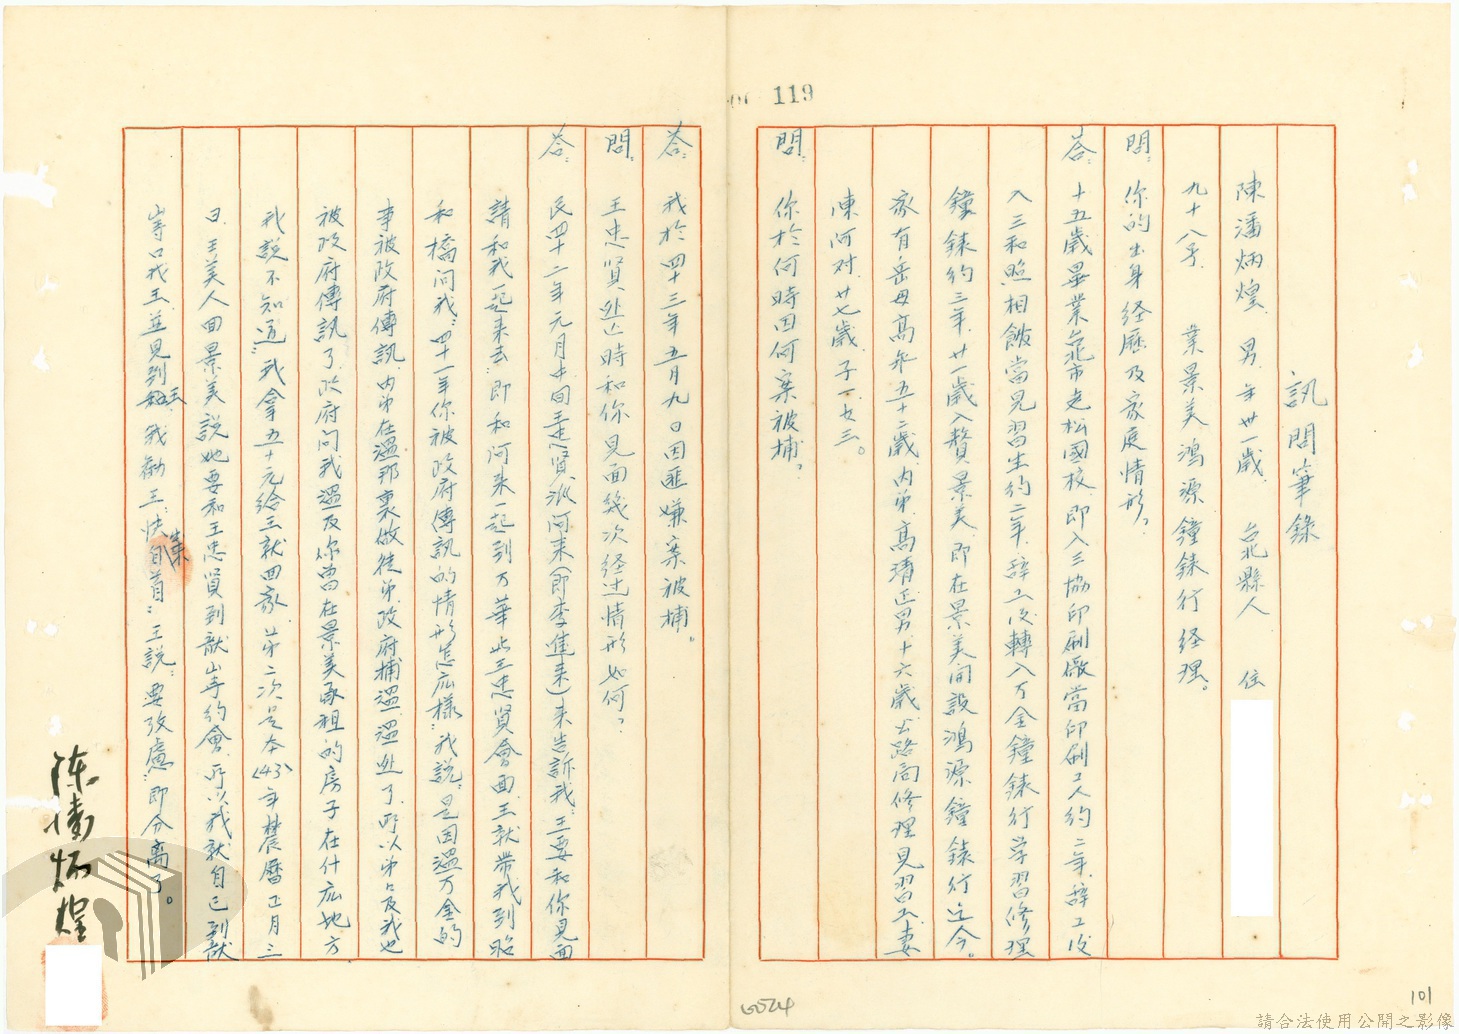 119
訊問筆錄
陳潘炳煌 男 年卅一歲 台北縣人 住
九十八号 業景美鴻源鐘錶行經理。
問：你的出身經歷及家庭情形？
答：十五歲畢業台北市老松國校，即入三協印刷廠當印刷工人約二年，辭工後
入三和照相舘當見習生約二年，辭工後轉入万金鐘錶行学習修理
鐘錶約三年，廿一歲入贅景美，即在景美開設鴻源鐘錶行迄今。
家有岳母高年五十二歲，內弟高清正男十六歲公路局修理見習工，妻
陳阿对，廿七歲，子一、女三。
問：你於何時因何案被捕？
答：我於四十三年五月九日因匪嫌案被捕。
問：王忠賢逃亡時和你見面幾次經过情形如何？
答：民四十二年元月中间王忠賢派阿来（即李進来）来告訴我：王要和你見面
請和我一起来去：即和阿来一起到万華与王忠賢會面，王就帶我到昭
和橋问我：四十一年你被政府傳訊的情形怎広樣：我說：是因溫万金的
事被政府傳訊，內弟在溫那裏做徒弟，政府捕溫，溫逃了，所以弟及我也
被政府傳訊了，政府问我溫及你曾在景美承租的房子在什広地方，
我說不知道：我拿五十元給王就回家。第二次是本(43)年農曆正月三
日，王美人回景美說她要和王忠賢到猷山寺約會，所以我就自己到猷
山寺口找王，並見到王，我勸王快来自首：王說：要攷慮：即分离了。
陈潘炳煌
6524
101
請合法使用公開之影像